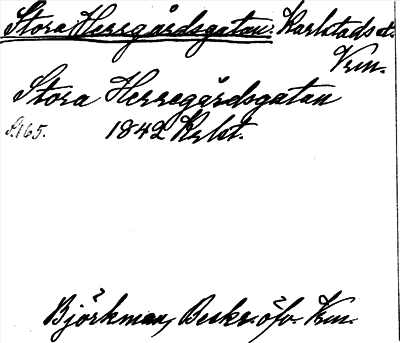 Stora Herregårdsgatan. Karlstads st.
Vrm.
Stora Herregårdsgatan
S. 165. 1842 Krbt.
Björkman, Beskr. öfv. Vrm.